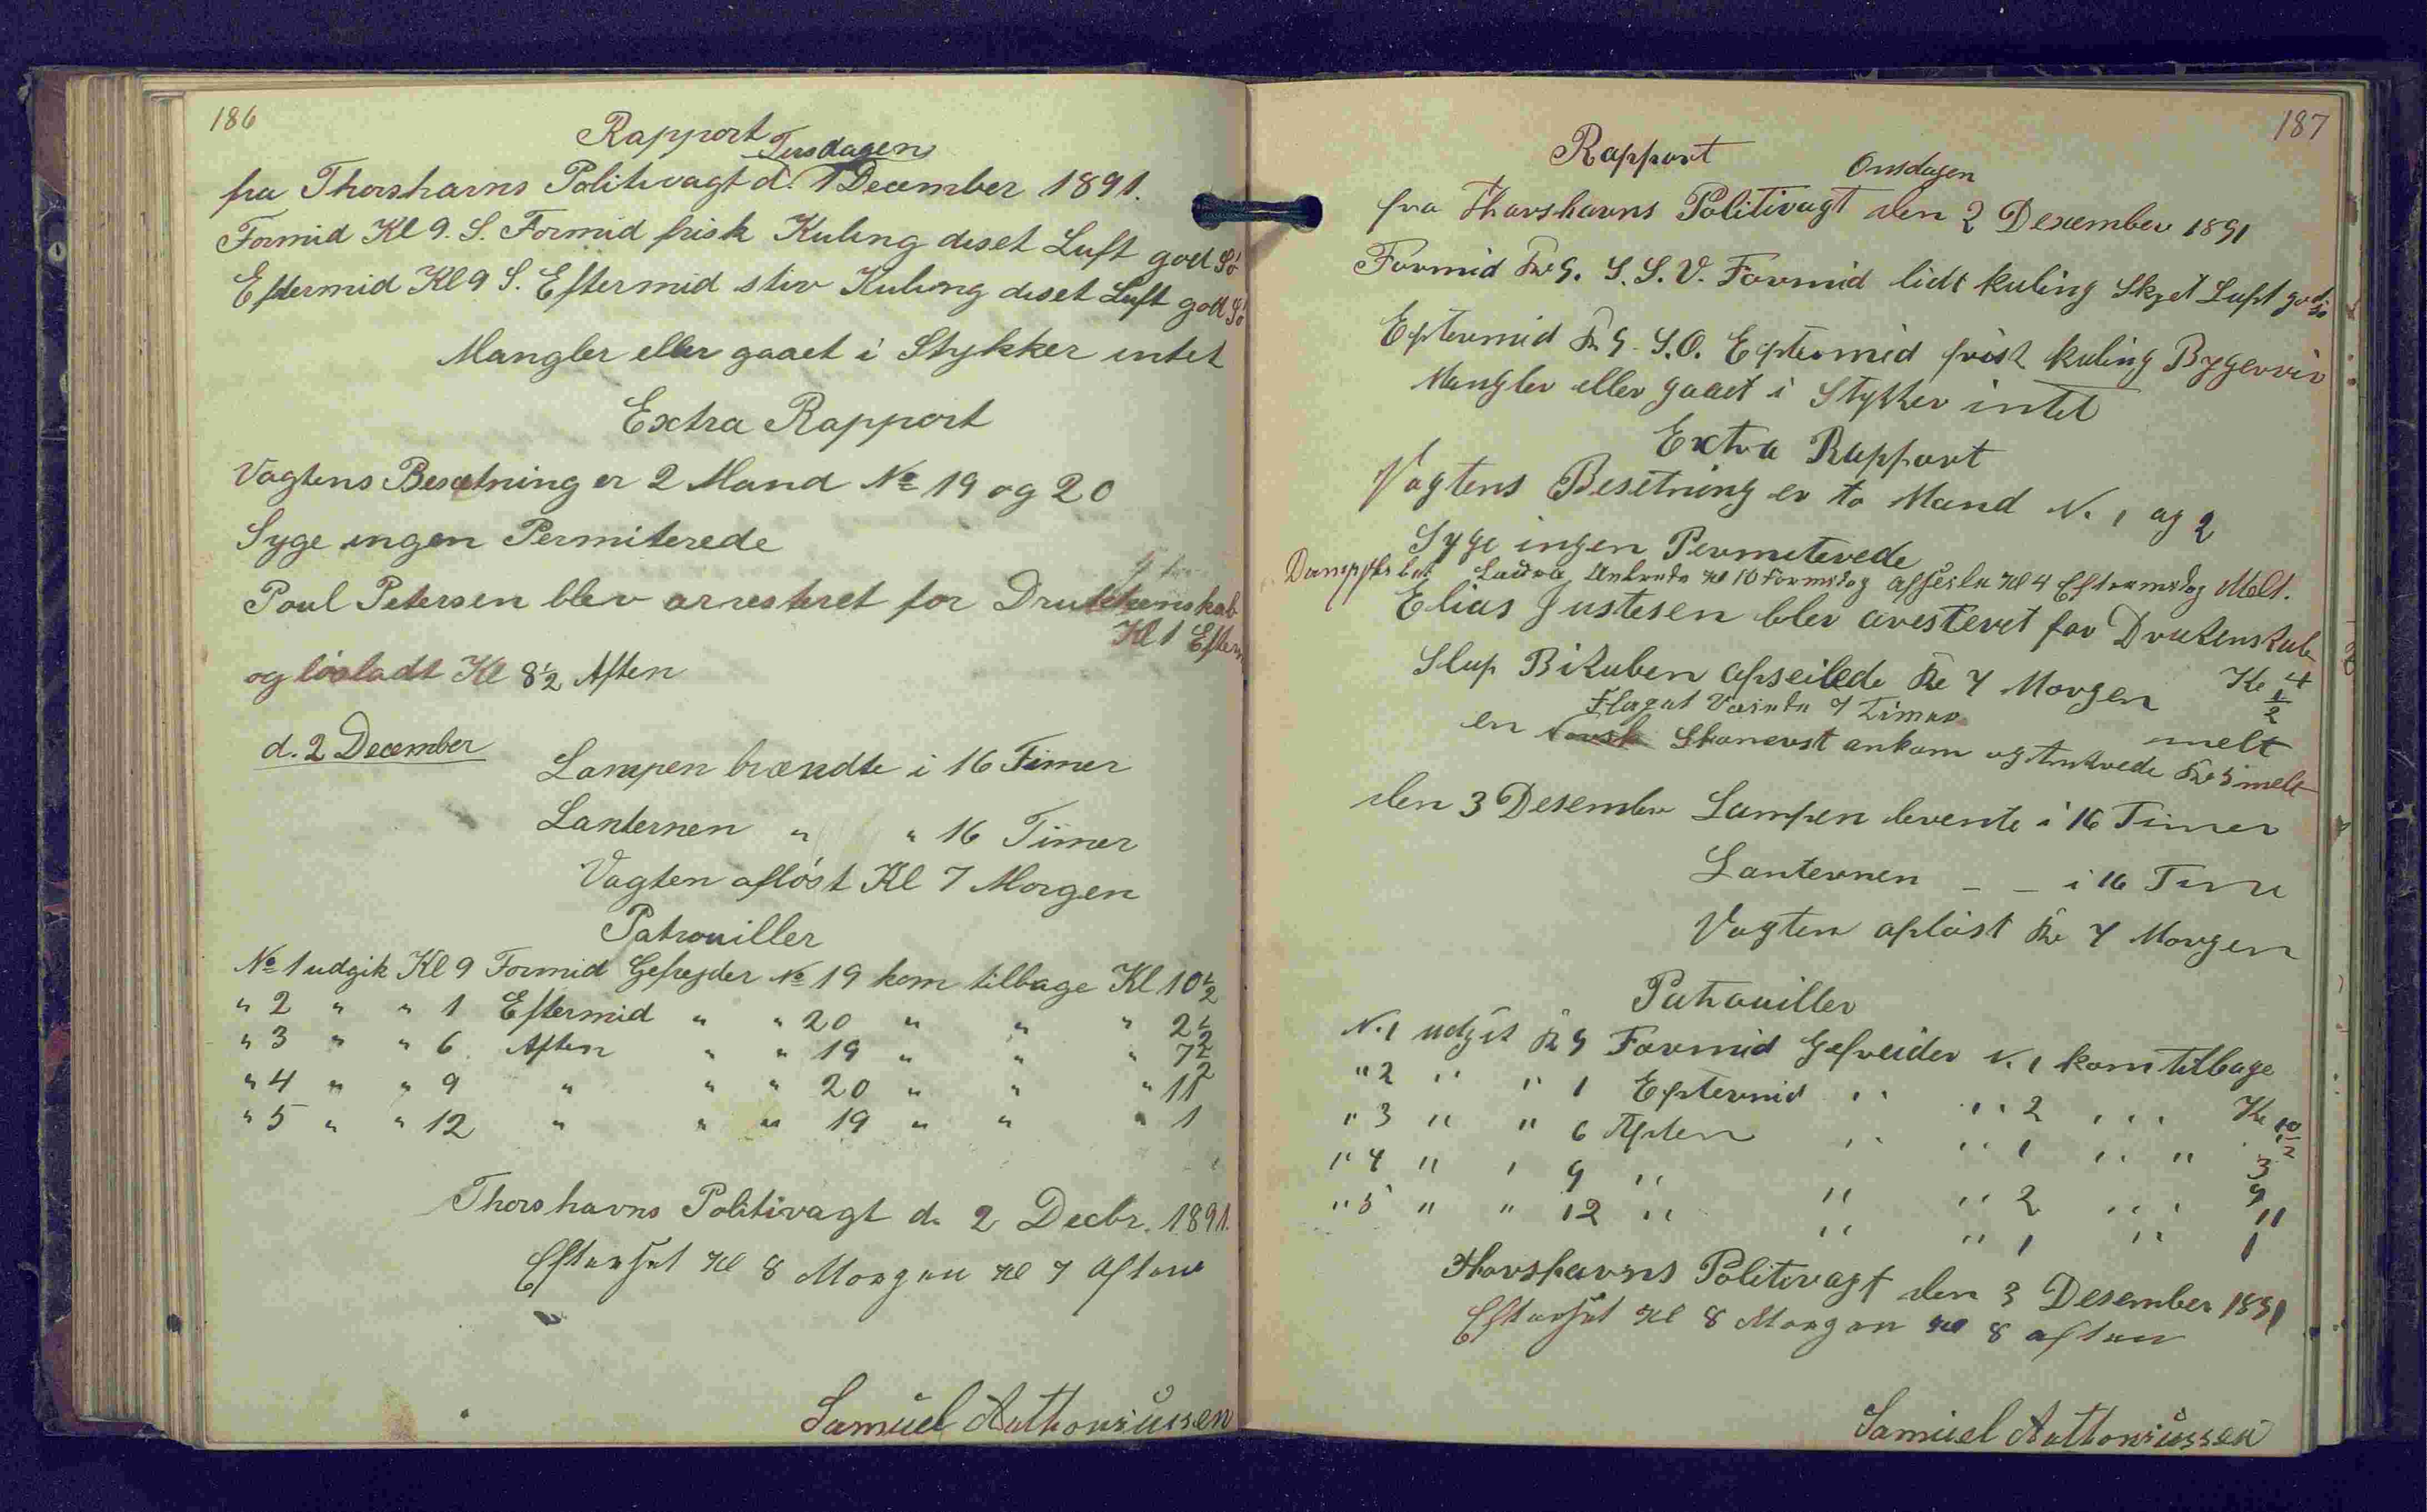 186
Rapport
Tirsdagen
fra Thorshavns Politivagt d. 1 December 1891.
Formid Kl 9. S. Formid frisk Kuling diset Luft god Sö
Eftermid Kl 9 S. Eftermid stiv Kuling diset Luft god Sö
Mangler eller gaaet i Stykker intet
Extra Rapport
Vagtens Besætning er 2 Mand No 19 og 20
Syge ingen Permiterede
Poul Petersen blev arresteret for Drukkenskab
Kl 1 Efterm
og lösladt Kl 8½ Aften
d. 2 December
Lampen brændte i 16 Timer
Lanternen " " 16 Timer
Vagten aflöst Kl 7 Morgen
Patrouiller
No 1 udgik Kl 9 Formid Gefrejder No 19 kom tilbage Kl 10½
" 2 " " 1 Eftermid " " 20 " " " 2½
" 3 " " 6 Aften " " 19 " " " 7½
" 4 " " 9 " " " 20 " " " 11
" 5 " " 12 " " " 19 " " " 1
Thorshavns Politivagt d. 2 Decbr. 1891.
Efterset Kl 8 Morgen Kl 7 Aften
Samuel Anthoniussen
187
Rapport
Onsdagen
fra Thorshavns Politivagt den 2 Desember 1891
Formid Kl 9. S. S. V. Formid lidt kuling Skyet Luft god Sö
Eftermid Kl 9. S.O. Eftermid frisk kuling Bygervir
Mangler eller gaaet i Stykker intet
Extra Rapport
Vagtens Besetning er to Mand N. 1 og 2
Syge ingen Permeterede
Dampskibet Laura Ankrede Kl 10 Formidag afseilte Kl 4 Eftermidag Melt.
Elias Justesen blev aresteret for Drukenskab
Kl 4½
Slup Bikuben afseilede Kl 7 Morgen
melt
Flaget Vaiede 7 Timer
en Norsk Skonerst ankom og Ankrede Kl 3 melt
den 3 Desember Lampen brente i 16 Timer
Lanternen _ _ i 16 Time
Vagten aflöst Kl 7 Morgen
Patrouiller
N. 1 udgik Kl 9 Formid Gefreider N. 1 kom tilbage
Kl 10½
" 2 " " 1 Eftermid " " 2 " " 3
" 3 " " 6 Aften " " 1 " " 9
" 4 " " 9 " " " 2 " " 11
" 5 " " 12 " " " 1 " 1
Thorshavns Politivagt den 3 Desember 1891
Efterset Kl 8 Morgen Kl 8 aften
Samuel Anthoniussen